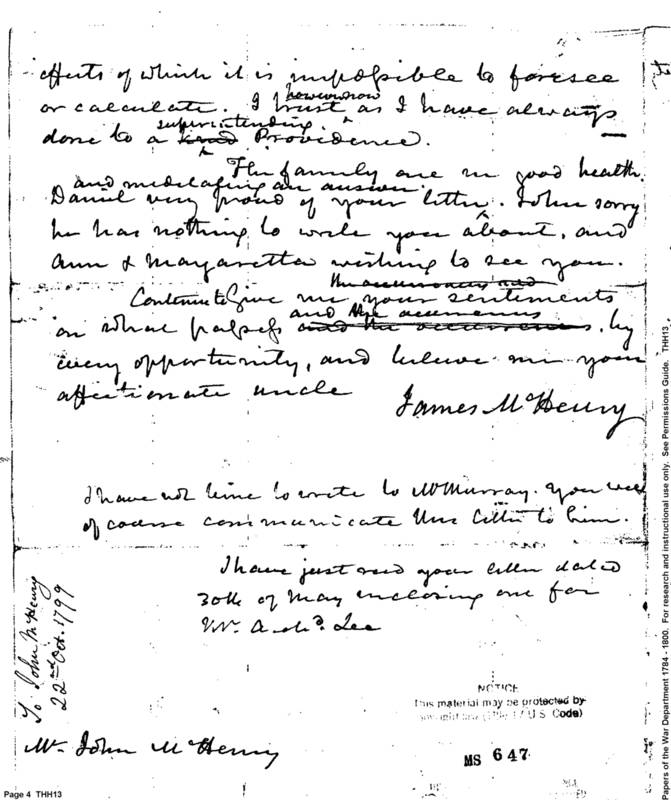 effects of which it is impossible to foresee
or calculate. I trust however now as I have always
done to a kind superintending Providence.
The family are in good health.
and meditating an answer.
Daniel very proud of your letter. John sorry
he has nothing to write you about, and
Ann & Margaretta wishing to see you.
the occurrences and
Continue to Give me your sentiments
on what passes and the occurrences and the occurrences, by
every opportunity, and believe me your
affectionate uncle
James McHenry
I have not time to write to Mr Murray. You will
of course communicate this letter to him.
I have just recd your letter dated
30th of May inclosing one for
Mr. Lee
To John McHenry
22nd Oct. 1799
Mr. John McHenry
NOTICE
This material may be protected by
copyright law (Title 17 U.S. Code)
MS 647
Page 4 THH13
Papers of the War Department 1784 - 1800. For research and instructional use only. See Permissions Guide. THH13